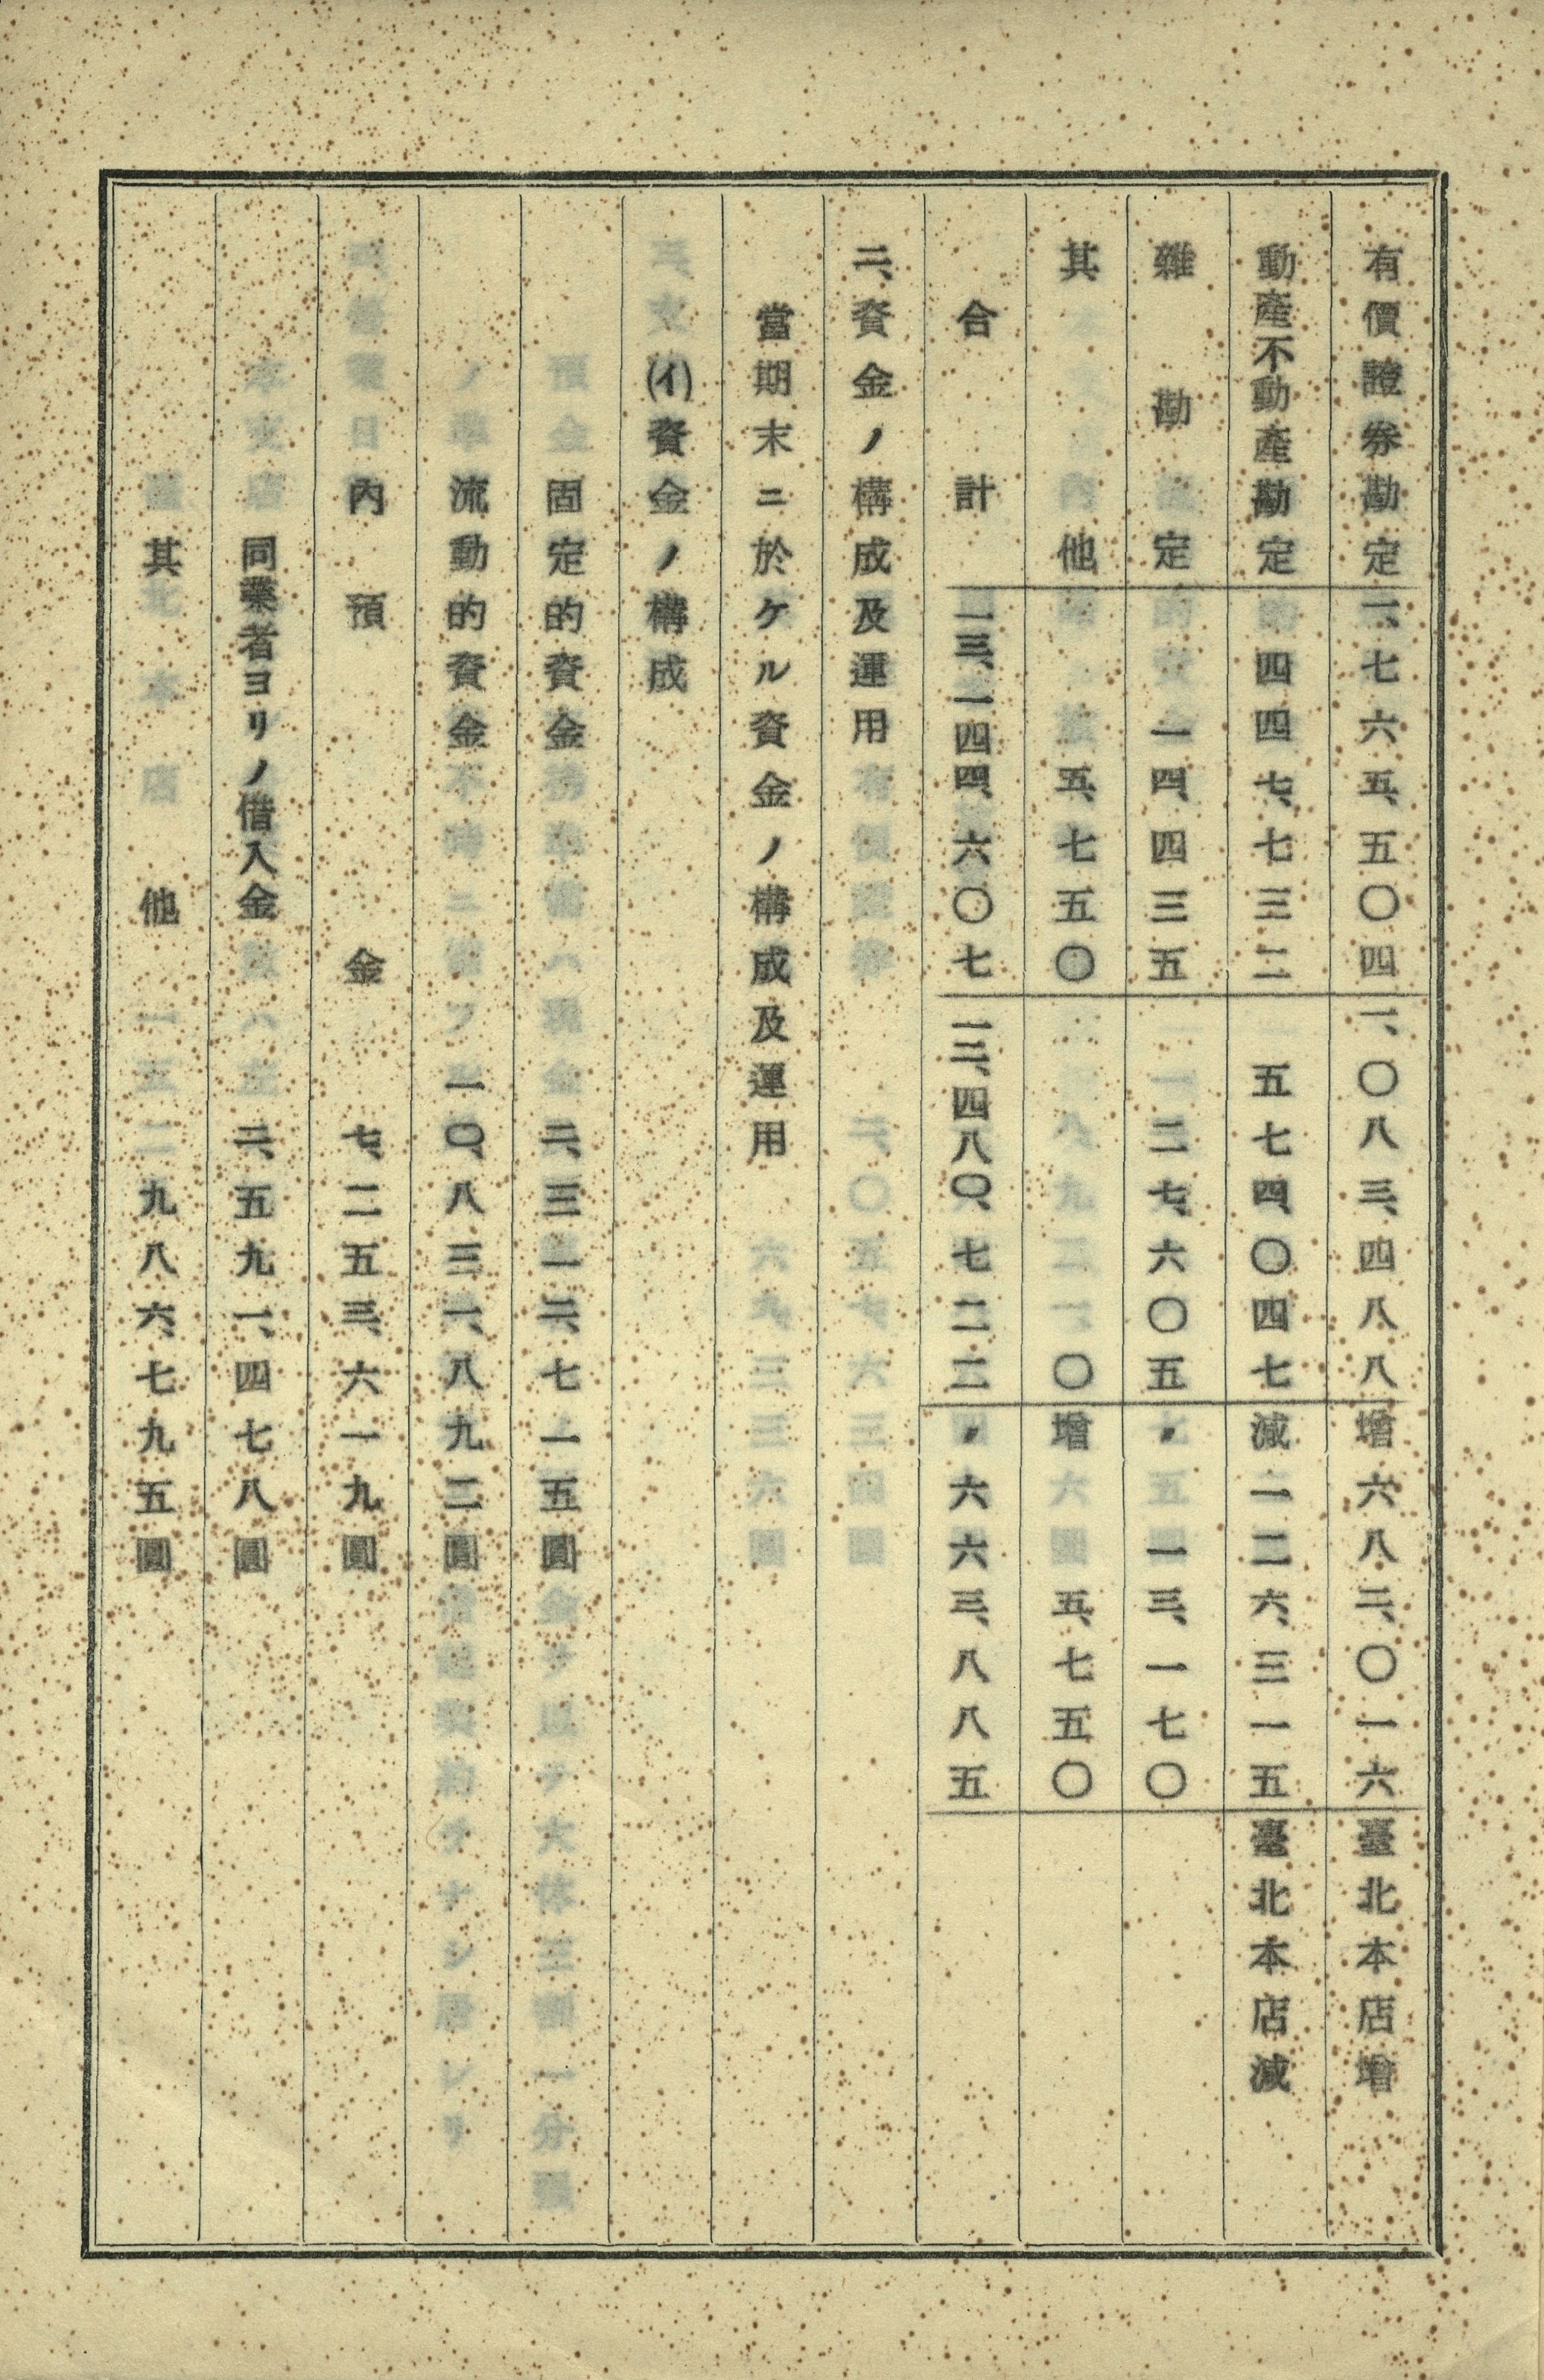 有價證券勘定 一、七六五、五〇四 一、〇八三、四八八 增六八二、〇一六 臺北本店增
動産不動産勘定 四四七、七三二 五七四、〇四七 減一二六、三一五 臺北本店減
雜勘定 一四、四三五 二七、六〇五 〃一三、一七〇
其他 五、七五〇 〇 增五、七五〇
合計 一三、一四四、六〇七 一二、四八〇、七二二 〃六六三、八八五
二、資金ノ構成及運用
當期末ニ於ケル資金ノ構成及運用
(イ)資金ノ構成
固定的資金 二、三一二、七一五圓
流動的資金 一〇、八三一、八九二圓
內預金 七、二五三、六一九圓
同業者ヨリノ借入金 二、五九一、四七八圓
其他 九八六、七九五圓